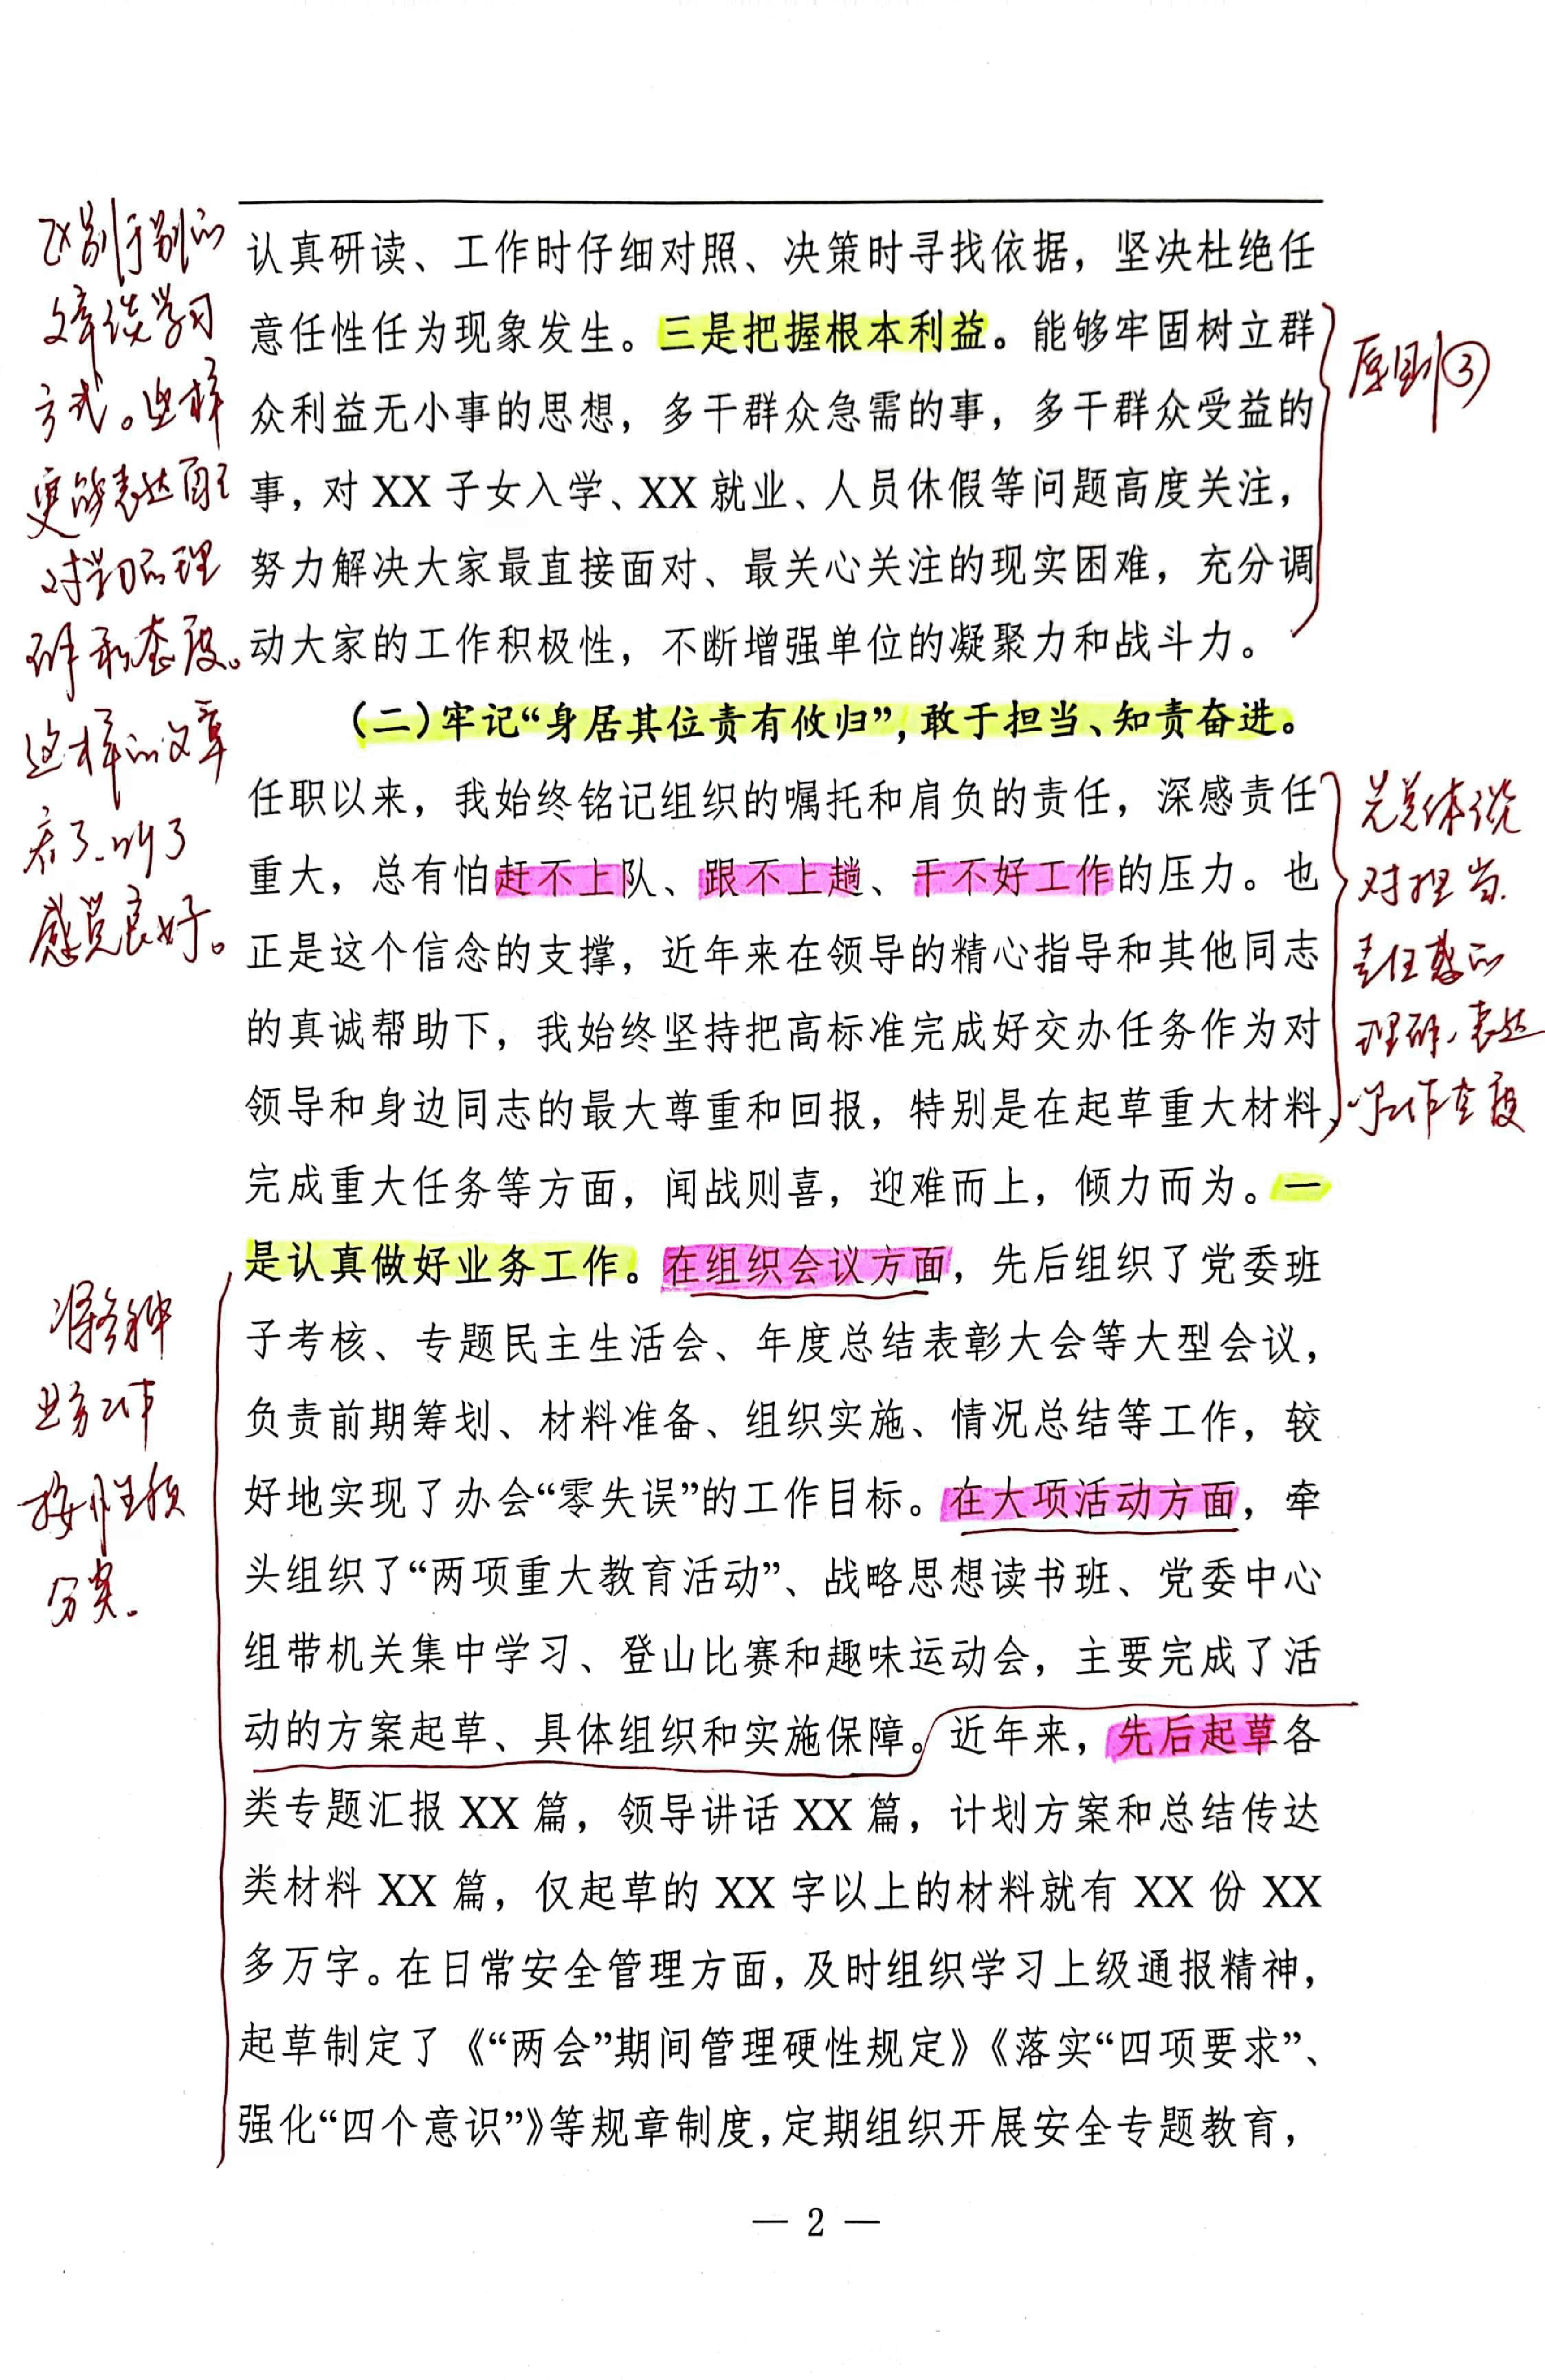 认真研读、工作时仔细对照、决策时寻找依据，坚决杜绝任
意任性任为现象发生。三是把握根本利益。能够牢固树立群
众利益无小事的思想，多干群众急需的事，多干群众受益的
事，对 XX 子女入学、XX 就业、人员休假等问题高度关注，
努力解决大家最直接面对、最关心关注的现实困难，充分调
动大家的工作积极性，不断增强单位的凝聚力和战斗力。
（二）牢记“身居其位责有攸归”，敢于担当、知责奋进。
任职以来，我始终铭记组织的嘱托和肩负的责任，深感责任
重大，总有怕赶不上队、跟不上趟、干不好工作的压力。也
正是这个信念的支撑，近年来在领导的精心指导和其他同志
的真诚帮助下，我始终坚持把高标准完成好交办任务作为对
领导和身边同志的最大尊重和回报，特别是在起草重大材料、
完成重大任务等方面，闻战则喜，迎难而上，倾力而为。一
是认真做好业务工作。在组织会议方面，先后组织了党委班
子考核、专题民主生活会、年度总结表彰大会等大型会议，
负责前期筹划、材料准备、组织实施、情况总结等工作，较
好地实现了办会“零失误”的工作目标。在大项活动方面，牵
头组织了“两项重大教育活动”、战略思想读书班、党委中心
组带机关集中学习、登山比赛和趣味运动会，主要完成了活
动的方案起草、具体组织和实施保障。近年来，先后起草各
类专题汇报 XX 篇，领导讲话 XX 篇，计划方案和总结传达
类材料 XX 篇，仅起草的 XX 字以上的材料就有 XX 份 XX
多万字。在日常安全管理方面，及时组织学习上级通报精神，
起草制定了《“两会”期间管理硬性规定》《落实“四项要求”、
强化“四个意识”》等规章制度，定期组织开展安全专题教育，
— 2 —
区别于别的
文章谈学习
方式。这样
更能表达自己
对学习的理
解和态度。
这样的文章
看了、听了
感觉良好。
将各种
业务工作
按性质
分类。
原则③
总体谈
对担当、
责任感的
理解，表达
工作态度